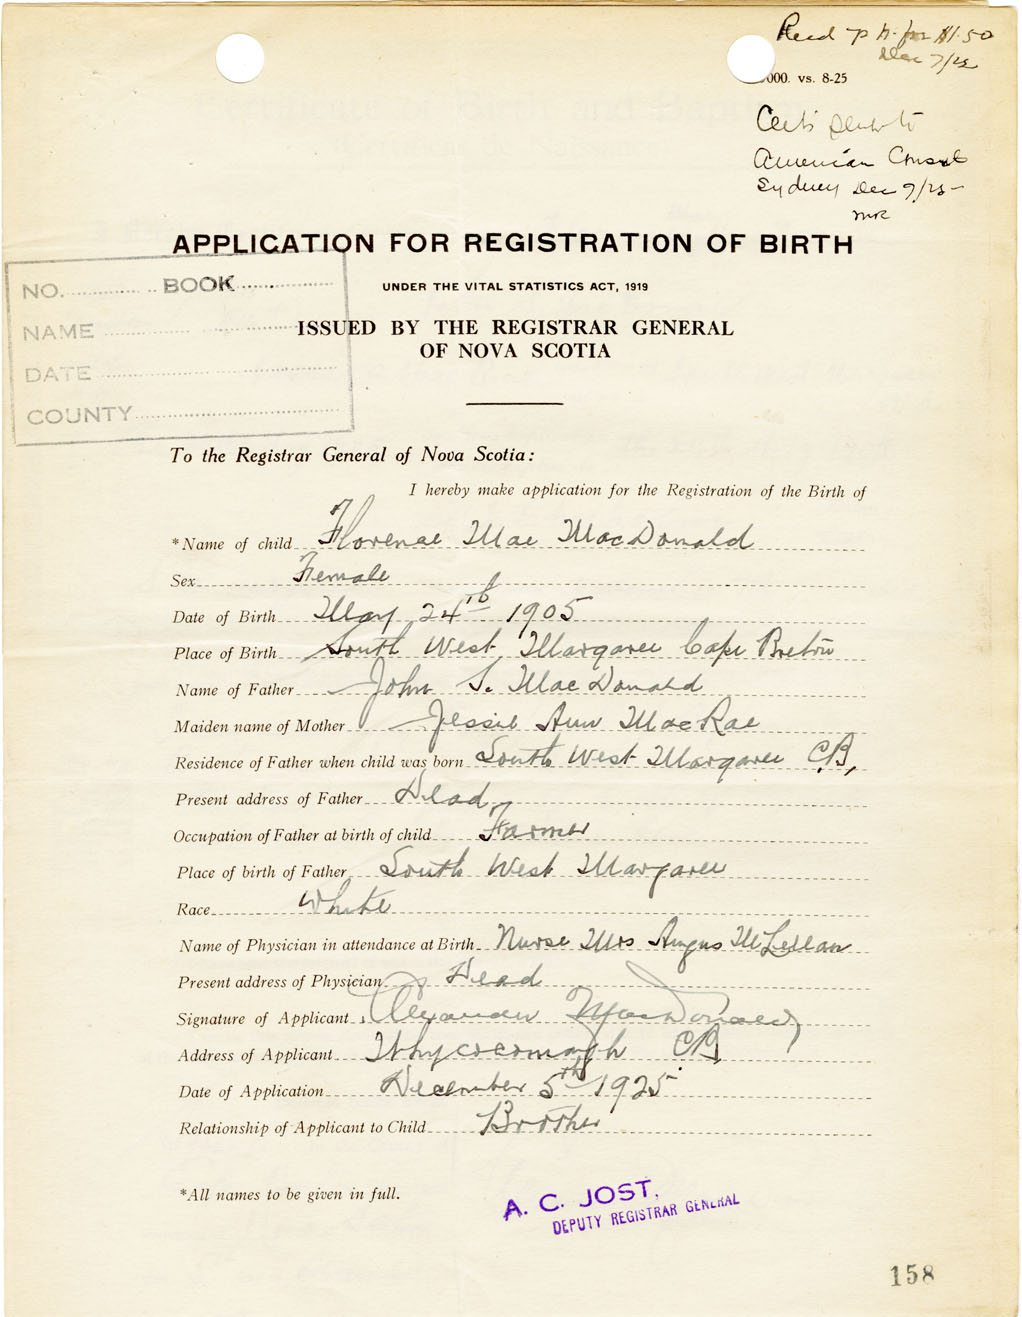 Recd P.N. for $1.50
Dec 7/25
000. vs. 8-25
Cert. sent to
American Consul
Sydney Dec 9/25
MR
APPLICATION FOR REGISTRATION OF BIRTH
UNDER THE VITAL STATISTICS ACT, 1919
ISSUED BY THE REGISTRAR GENERAL
OF NOVA SCOTIA
NO. BOOK
NAME
DATE
COUNTY
To the Registrar General of Nova Scotia:
I hereby make application for the Registration of the Birth of
*Name of child Florence Mae MacDonald
Sex Female
Date of Birth May 24th 1905
Place of Birth South West Margaree Cape Breton
Name of Father John S. MacDonald
Maiden name of Mother Jessie Ann MacRae
Residence of Father when child was born South West Margaree C.B,
Present address of Father Dead
Occupation of Father at birth of child Farmer
Place of birth of Father South West Margaree
Race White
Name of Physician in attendance at Birth Nurse Mrs Angus McLellan
Present address of Physician Dead
Signature of Applicant Alexander MacDonald
Address of Applicant Whycocomagh CB
Date of Application December 5th 1925
Relationship of Applicant to Child Brother
*All names to be given in full.
A. C. JOST,
DEPUTY REGISTRAR GENERAL
158